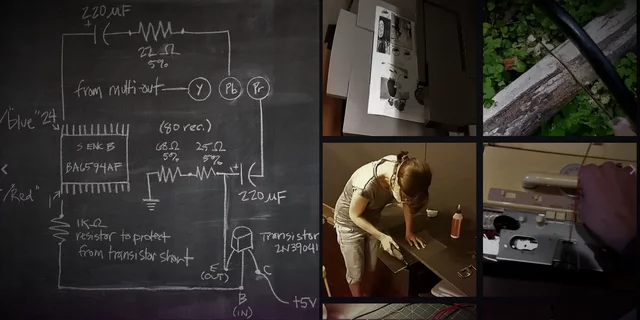 220 µF
+
22 Ω
5%
from multi-out Y Pb Pr
"Blue" 24
(80 rec.)
S ENC B
BA6594AF
68Ω 25Ω
5% 5%
+
/"Red" 1
220 µF
1KΩ
resistor to protect
from transistor short
Transistor
2N3904
E
(OUT)
C
B
(IN)
+5V